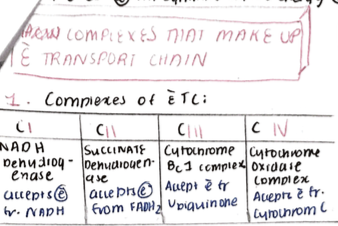 COMPLEXES THAT MAKE UP
ē TRANSPORT CHAIN
1. Complexes of ēTC:
CI CII CIII C IV
NADH Dehydrogenase accepts ē fr. NADH
Succinate Dehydrogenase accepts ē from FADH2
Cytochrome Bc1 complex Accept ē fr Ubiquinone
Cytochrome Oxidase complex Accepts ē fr. Cytochrom C